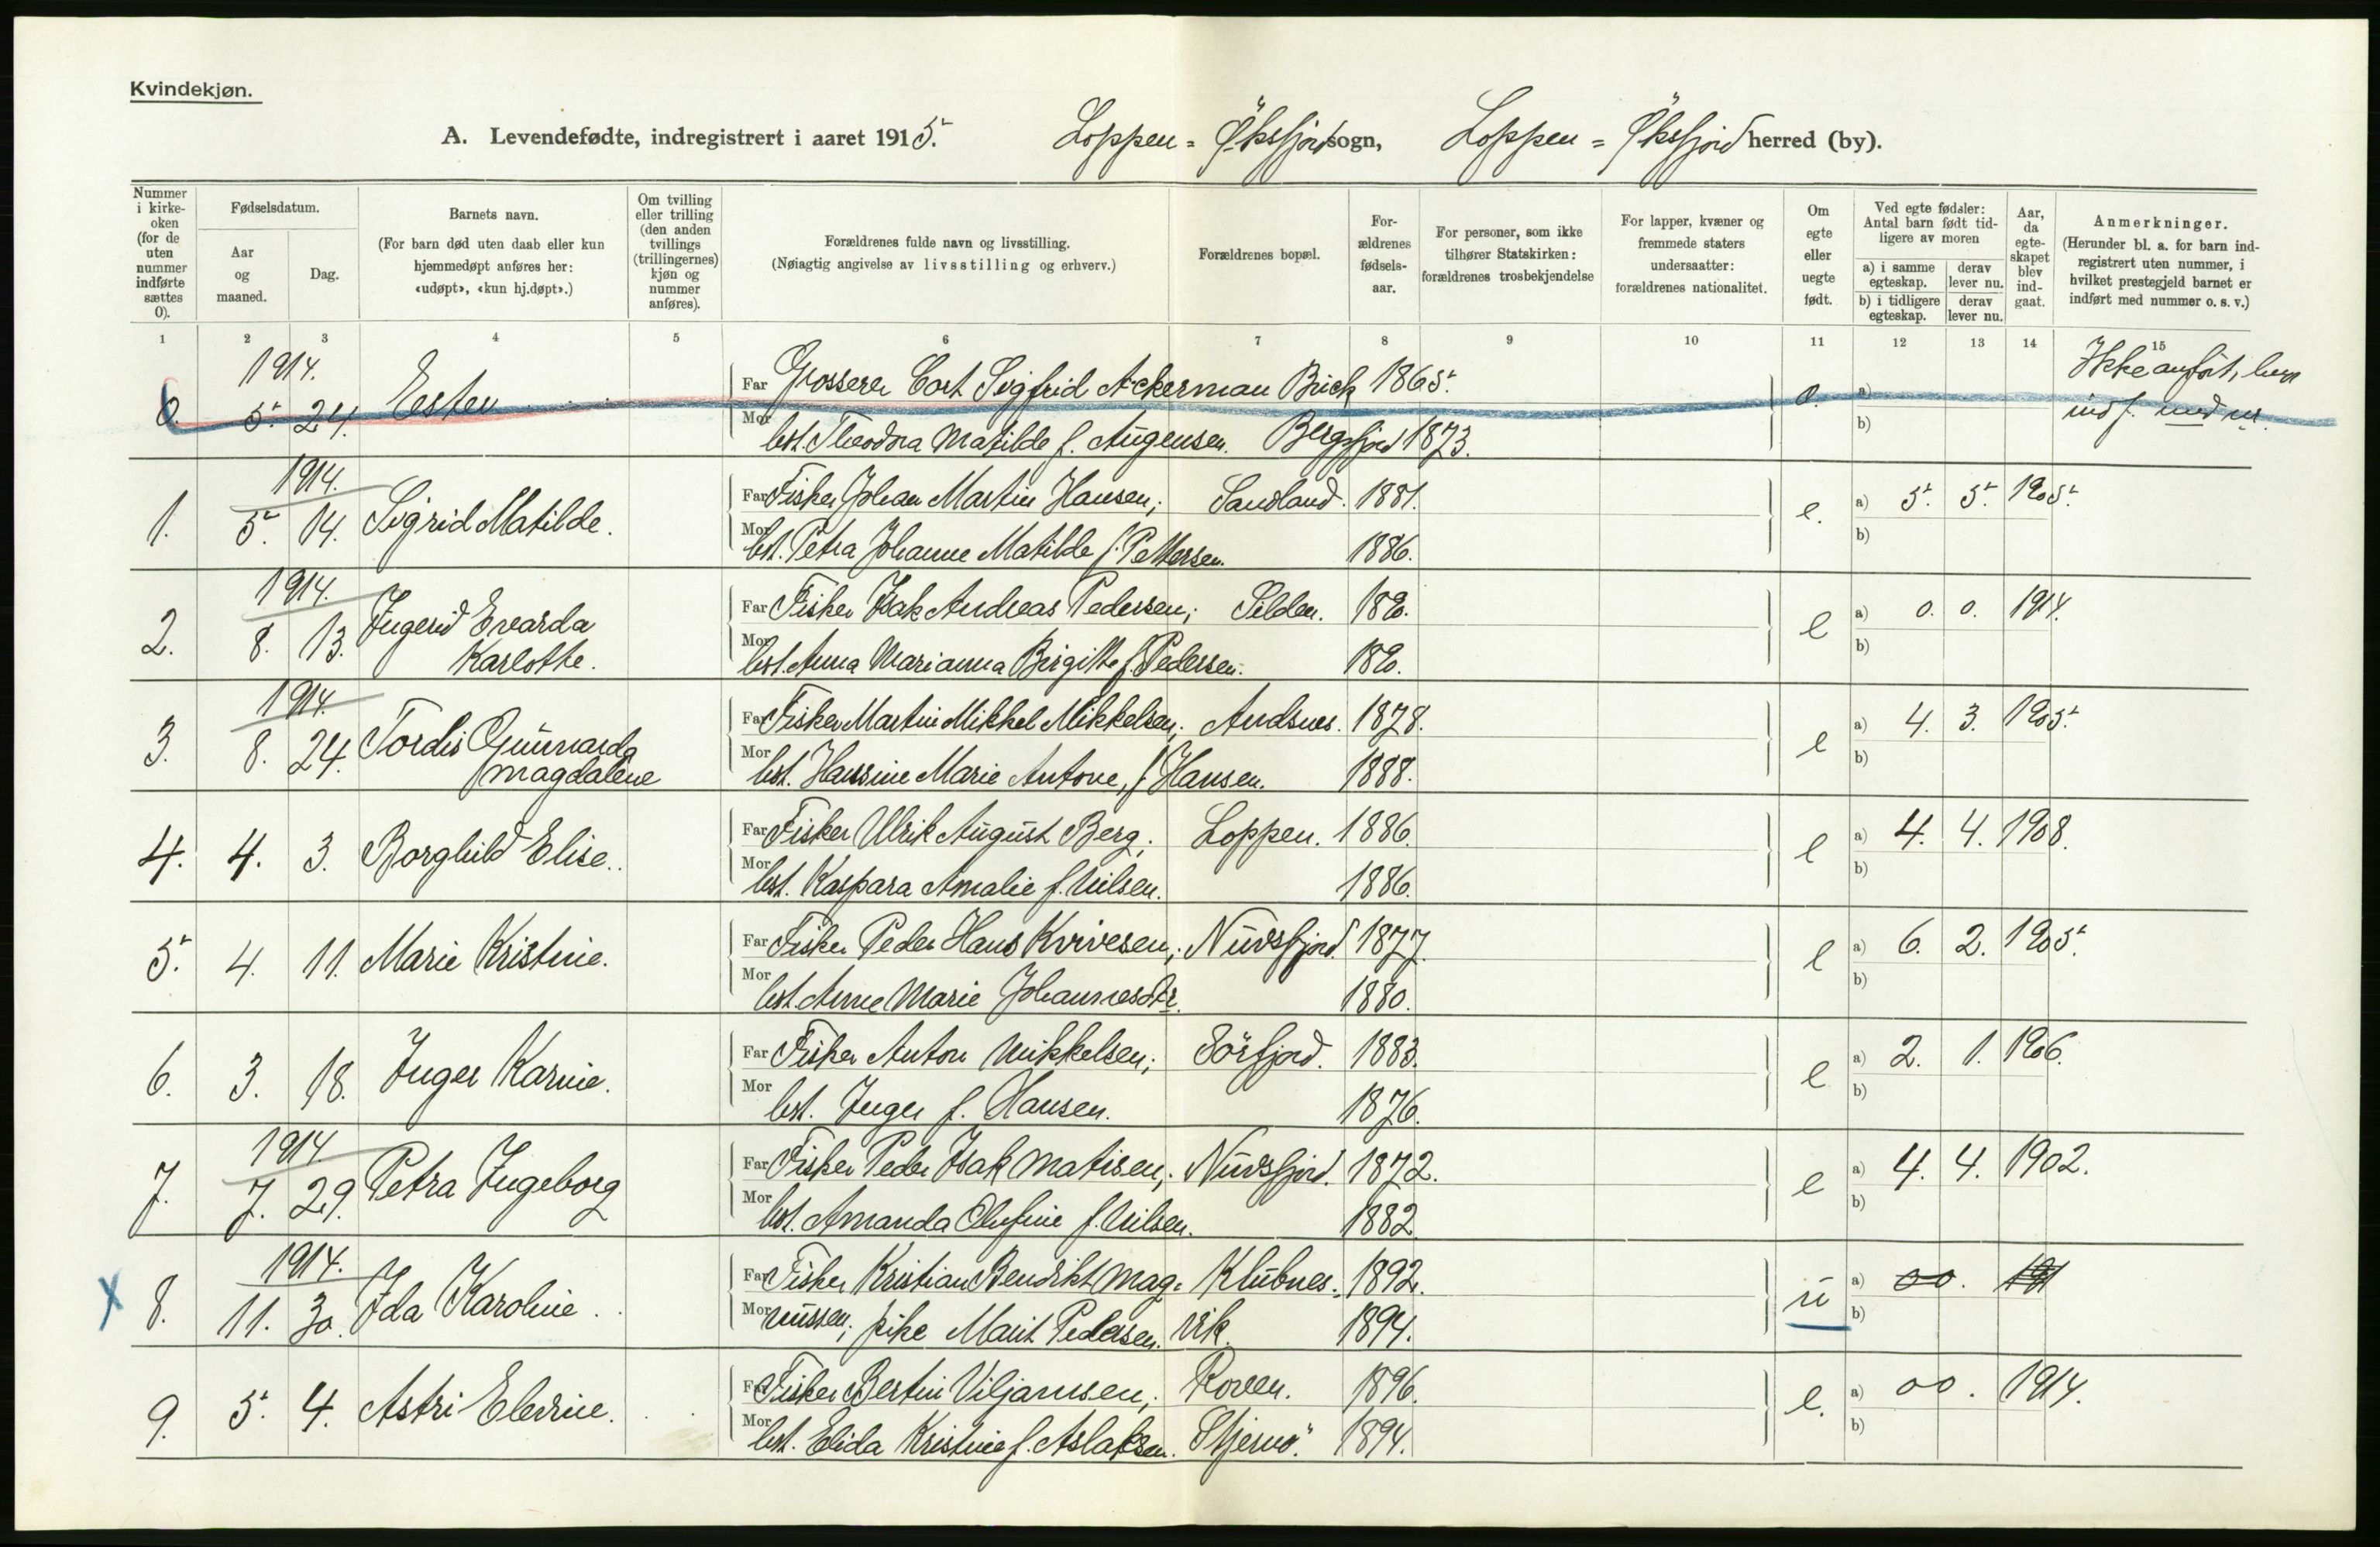 Kvindekjøn.
A. Levendefødte, indregistrert i aaret 1915. Loppen = Øksfjord sogn, Loppen = Øksfjord herred (by).
Nummer i kirke-oken (for de uten nummer indførte sættes 0).
Fødselsdatum.
Aar og maaned.
Dag.
Barnets navn.
(For barn død uten daab eller kun hjemmedøpt anføres her: «udøpt», «kun hj.døpt».)
Om tvilling eller trilling (den anden tvillings (trillingernes) kjøn og nummer anføres).
Forældrenes fulde navn og livsstilling.
(Nøiagtig angivelse av livsstilling og erhverv.)
Forældrenes bopæl.
For-ældrenes fødsels-aar.
For personer, som ikke tilhører Statskirken: forældrenes trosbekjendelse
For lapper, kvæner og fremmede staters undersaatter: forældrenes nationalitet.
Om egte eller uegte født.
Ved egte fødsler: Antal barn født tid-ligere av moren
a) i samme egteskap. derav lever nu.
b) i tidligere egteskap. derav lever nu.
Aar, da egte-skapet blev ind-gaat.
Anmerkninger.
(Herunder bl. a. for barn ind-registrert uten nummer, i hvilket prestegjeld barnet er indført med nummer o. s. v.)
1 2 3 4 5 6 7 8 9 10 11 12 13 14 15
1914.
0. 5. 24. Ester Far Grosserer Cort Sigfrid Ackerman Buck 1865. 0. a) Ikke anført, her
Mor best. Theodora Matilde f. Augensen. Bergsfjord 1873. b) indf. med nr.
1914.
1. 5. 14. Sigrid Matilde. Far Fisker Johan Martin Hansen; Sandland. 1881. e. a) 5. 5. 1905.
Mor best. Petra Johanne Matilde f. Pettersen. 1886. b)
1914.
2. 8. 13. Ingerid Evarda Karlotte. Far Fisker Isak Andreas Pedersen; Silden. 1890. e a) 0. 0. 1914.
Mor best. Anna Marianna Birgitte f. Pedersen. 1890. b)
1914.
3. 8. 24. Tordis Gunnarda Magdalene Far Fisker Martin Mikkel Mikkelsen; Andsnes. 1878. e a) 4. 3. 1905.
Mor best. Hansine Marie Antone, f. Hansen. 1888. b)
4. 4. 3. Borghild Elise. Far Fisker Ulrik August Berg; Loppen. 1886. e a) 4. 4. 1908.
Mor best. Kaspara Amalie f. Nilsen. 1886. b)
5. 4. 11. Marie Kristine. Far Fisker Peder Hans Kvivesen; Nuvsfjord. 1877. e a) 6. 2. 1905.
Mor best. Anne Marie Johannesdtr. 1880. b)
6. 3. 18. Inger Karine. Far Fisker Anton Mikkelsen; Sörfjord. 1883. e a) 2. 1. 1906.
Mor best. Inger f. Hansen. 1876. b)
1914
7. 7. 29. Petra Ingeborg Far Fisker Peder Isak Matisen; Nuvsfjord. 1872. e a) 4. 4. 1902.
Mor best. Amanda Olufine f. Nilsen. 1882 b)
1914.
X 8. 11. 30. Ida Karoline. Far Fisker Kristian Bendikt Mag- Klubnes- 1892. u a) 00. 191
Mor nussen; pike Marit Pedersen. vik. 1894. b)
9. 5. 4. Astri Eledine. Far Fisker Bertin Viljamsen; Roven. 1896. e. a) 00. 1914.
Mor best. Elida Kristine f. Aslaksen. Stjernö. 1894. b)